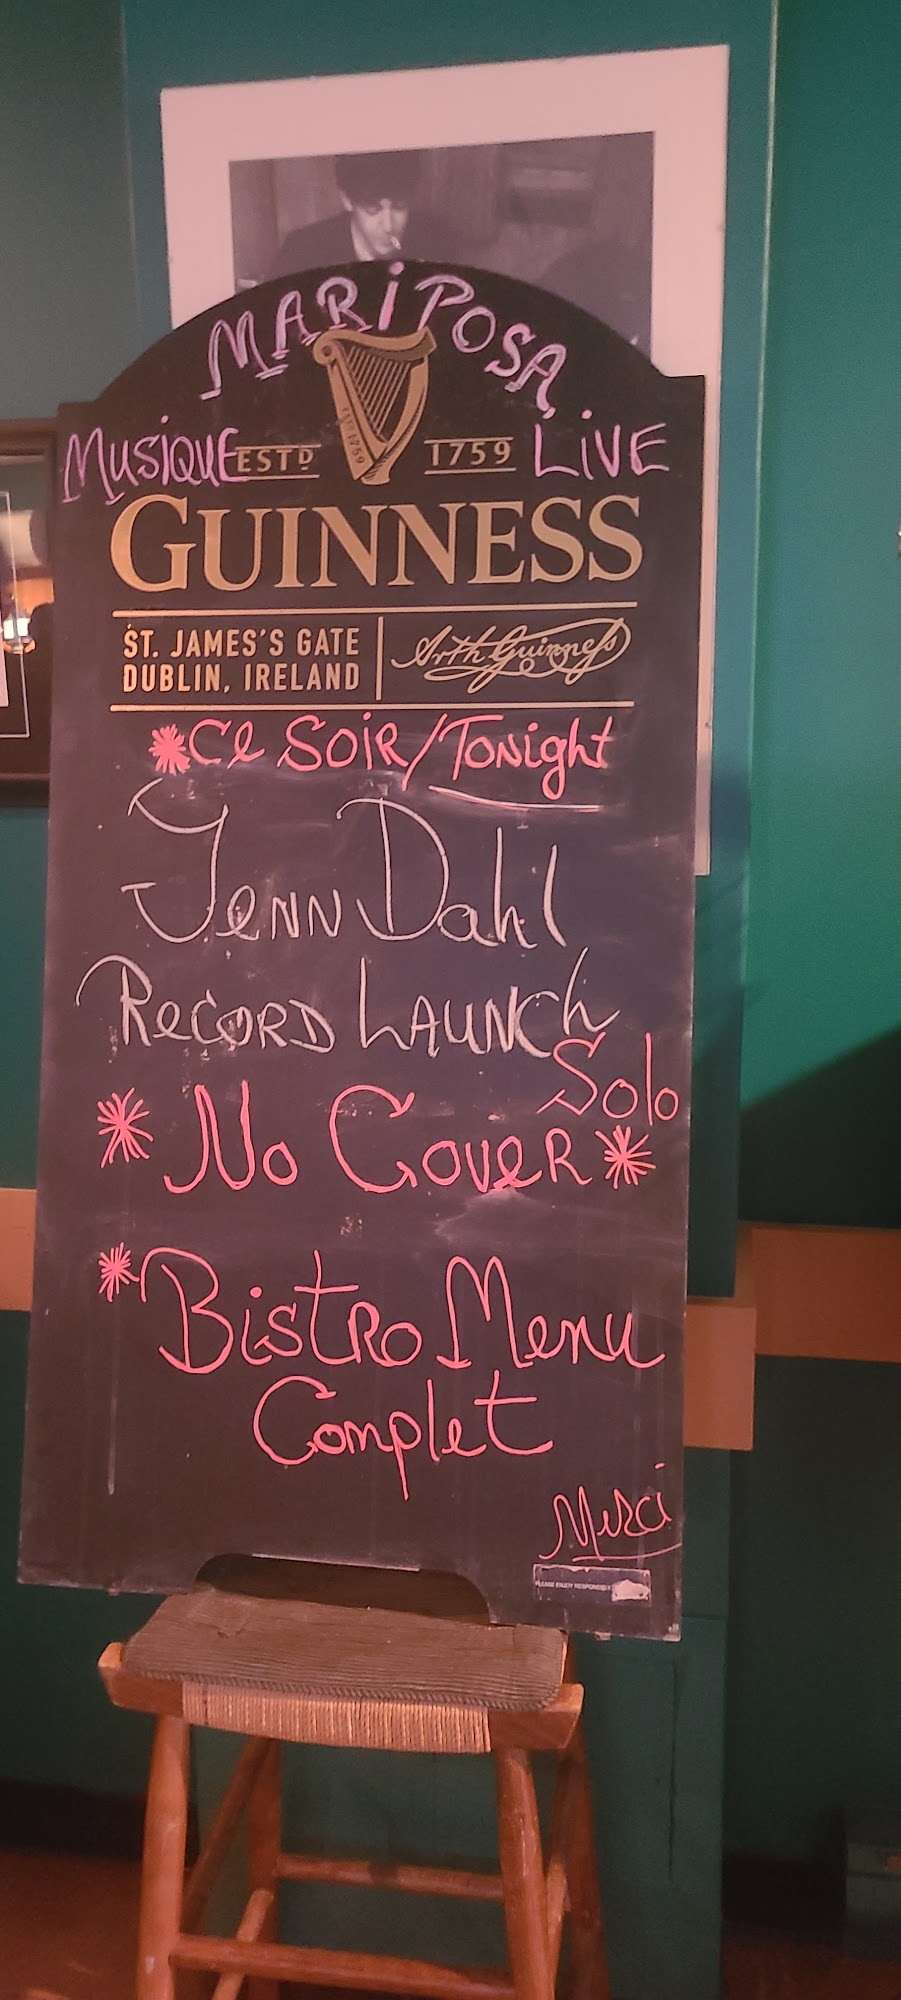 MARiPOSA
MUSiQUE ESTD 1759 LiVE
GUINNESS
ST. JAMES'S GATE
DUBLIN, IRELAND
Arth Guinness
*Ce SOiR/Tonight
Jenn Dahl
RecORD LAUNCh
Solo
* No CoveR *
*BistRo Menu
Complet
Merci
PLEASE ENJOY RESPONSIBLY